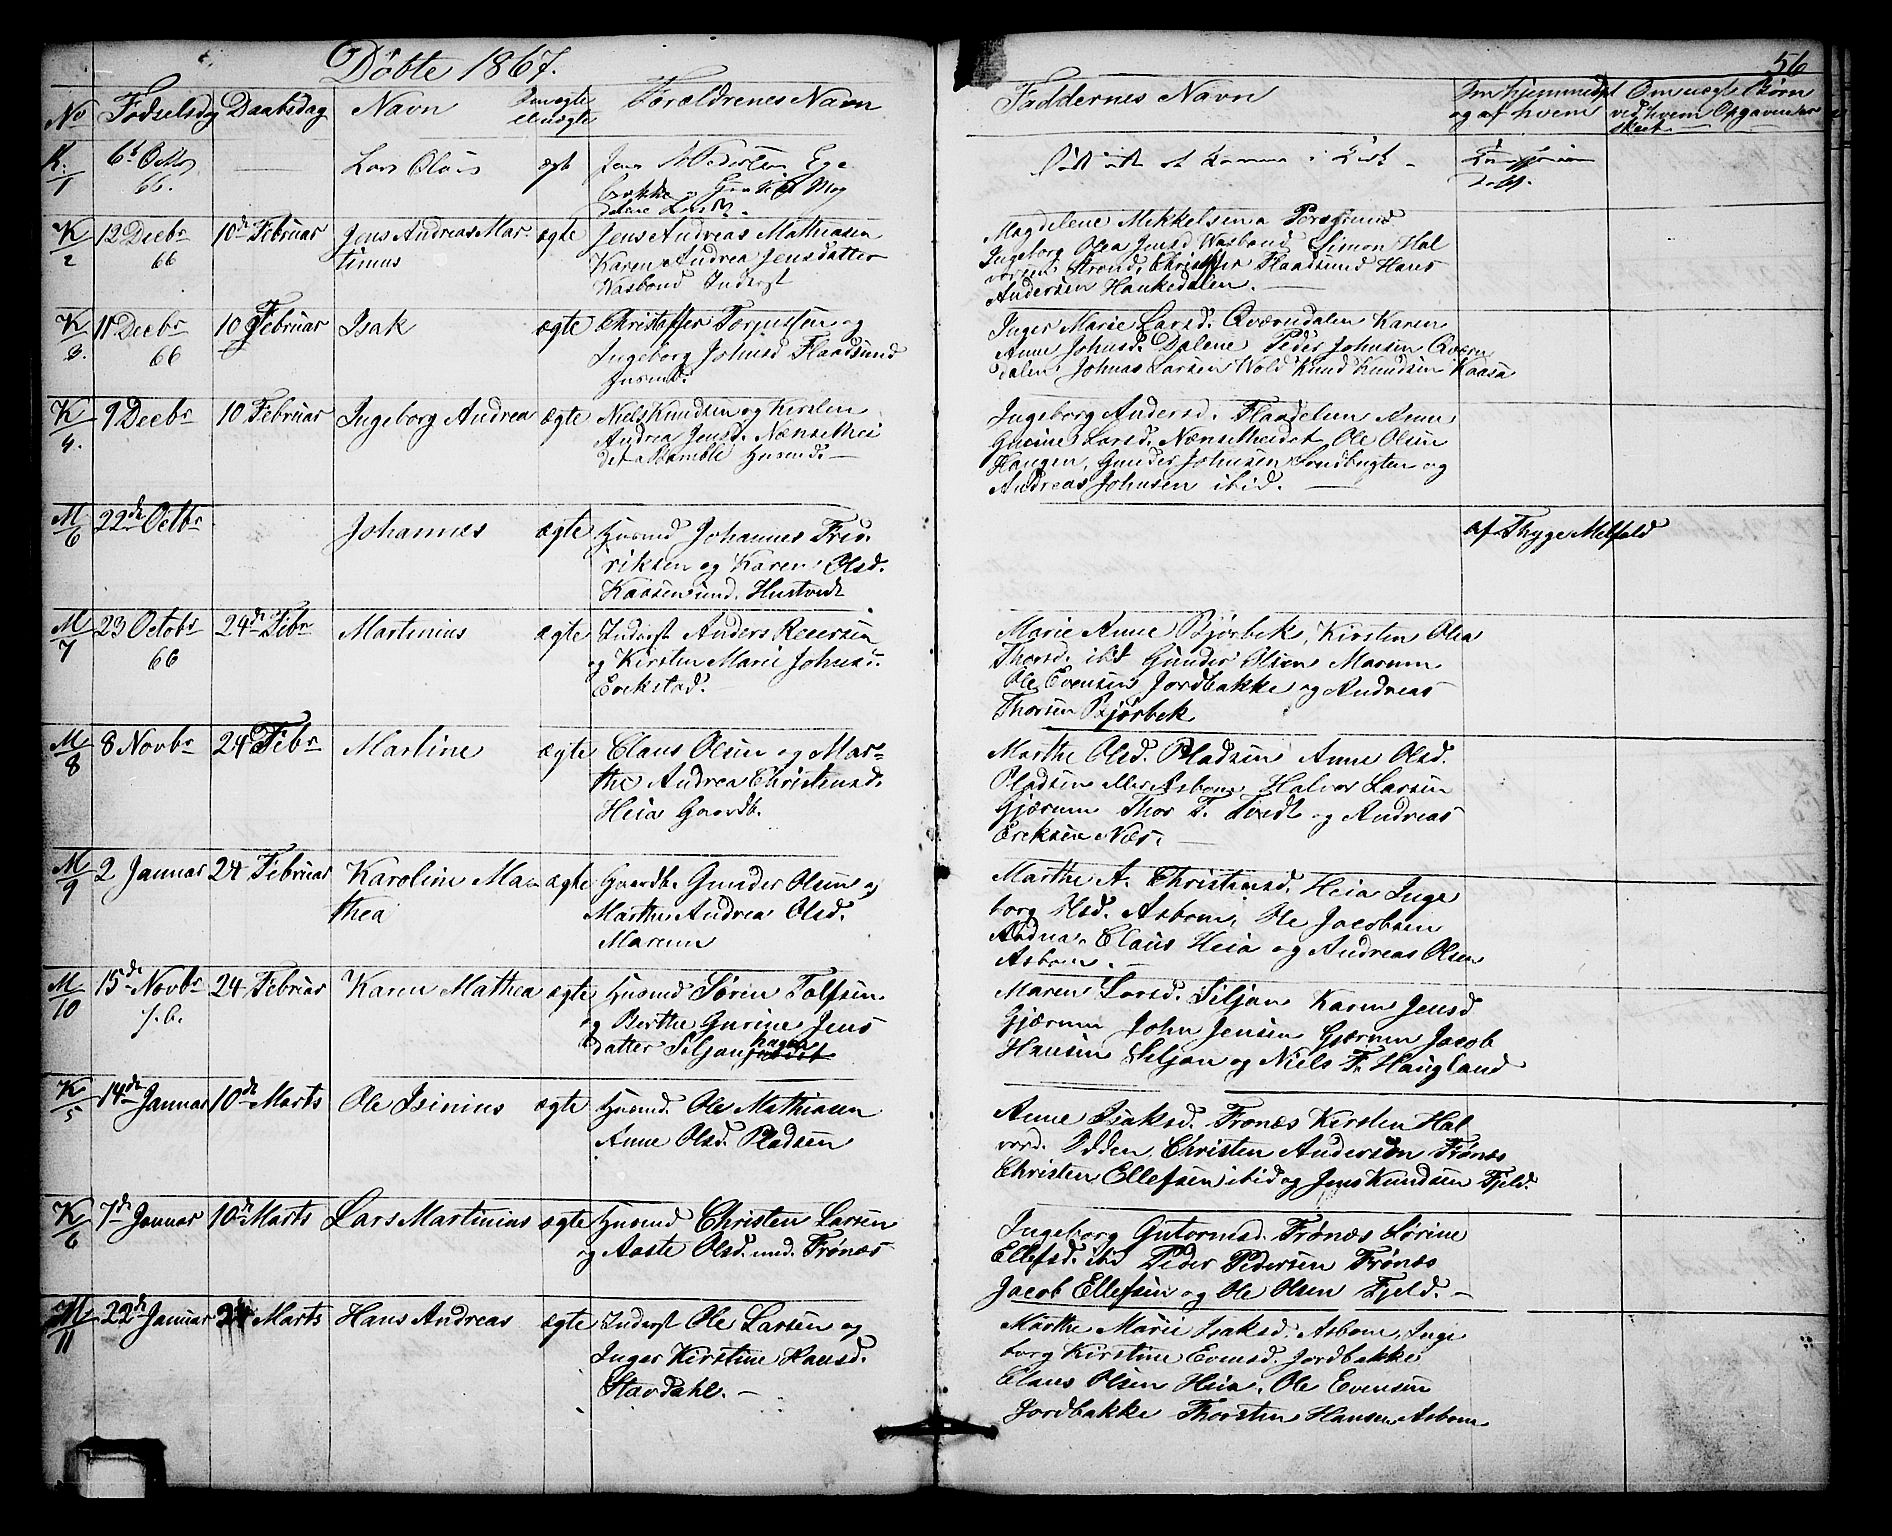 Döbte 1867.
56
No Födselsdag Daabsdag Navn Om ægte el uægte Forældrenes Navn
Faddernes Navn
Om hjemmedøbt og af hvem
Om uægte Börn ved hvem Opgaven er skeet
K. 1
66.
ægt
K 2 12 Decbr 66 10de Februar Jens Andreas Mar-
timus
ægte Jens Andreas Mathiasen
Karen Andrea Jensdatter
Wasbond Inderst
Magdelene Mikkelsen Porsgrund
Ingeborg Olea Jensd Wasbond, Simon Hal
vorsen Strand, Christoffer Flaadsund Hans
Andersen Haukedalen.
K 3. 11 Decbr 66 10 Februar Isak
ægte Christoffer Torjussen og
Ingeborg Johnsd Flaadsund
Husmd.
Inger Marie Larsd. Qværndalen Karen
Anne Johnsd. Dalene Peder Johnsen Qværn
dalen Johnas Larsen Wold Knud Knudsen Kaasa
K 4. 9 Decbr 10 Februar Ingeborg Andrea
ægte Niels Knudsen og Kirsten
Andrea Jensd. Nænsethei
det Bamble Husmd. —
Ingeborg Andersd. Flaadelene Anne
Gurine Larsd. Nænsetheidet Ole Olsen
Haugen, Gunder Johnsen Sandbugten og
Andreas Johnsen ibid. —
M 6 22de Octbr Johannes
ægte Husmd Johannes Fred
riksen og Karen Olsd.
Kaasensund. Hustvedt
af Thyge Melfald
M 7 23 Octobr 66 24de Febr Martinius
ægte Inderst Anders Reiersen
og Kirsten Marie Johnsd.
Erekstad.
Marie Anne Bjørbek, Kirsten Olea
Thorsd. ibd Gunder Olsen Marum
Ole Evensen Jordbakke og Andreas
Thorsen Bjørbek
M 8 8 Novbr 24 Febr Martine
ægte Claus Olsen og Mar-
the Andrea Christensd.
Heia Gaardb.
Marthe Olsd. Pladsen Anne Olsd.
Pladsen eller Asbom Halvor Larsen
Gjærum Thor T. Tvedt og Andreas
Ereksen Næs. —
M 9 2 Januar 24 Februar Karoline Ma-
thea
ægte Gaardb. Gunder Olsen og
Marthe Andrea Olsd.
Marum
Marthe A. Christensd. Heia Inge
borg Olsd. Asbom, Ole Jacobsen
Claus Heia og Andreas Olsen
Asbom. —
M 10 15de Novbr f.b. 24 Februar Karen Mathea
ægte Husmd Sören Tolfsen
og Berthe Gurine Jens
datter Siljan hagen
Maren Larsd. Siljan Karen Jensd
Gjærum John Jensen Gjærum Jacob
Hansen Siljan og Niels F. Haugland
K 5 14de Januar 10de Marts Ole Isinius
ægte Husmd. Ole Mathiasen
Anne Olsd. Pladsen
Anne Isaksd. Frønæs Kirsten Hal
vord. Odden, Christen Andersen Frønæs
Christen Ellefsen ibid og Jens Knudsen Fjeld.
K 6 7de Januar 10de Marts Lars Martinius
ægte Husmd Christen Larsen
og Aaste Olsd. und. Frønæs
Ingeborg Gutormsd. Frønæs Sörine
Ellefsd. ibd Peder Pedersen Frønæs
Jacob Ellefsen og Ole Olsen Fjeld. —
M 11 22de Januar 24 Marts Hans Andreas
ægte Inderst Ole Larsen og
Inger Kirstine Hansd.
Stavdahl. —
Marthe Marie Isaksd. Asbom, Inge
borg Kirstine Evensd. Jordbakke
Claus Olsen Heia, Ole Evensen
Jordbakke Thorsten Hansen Asbom